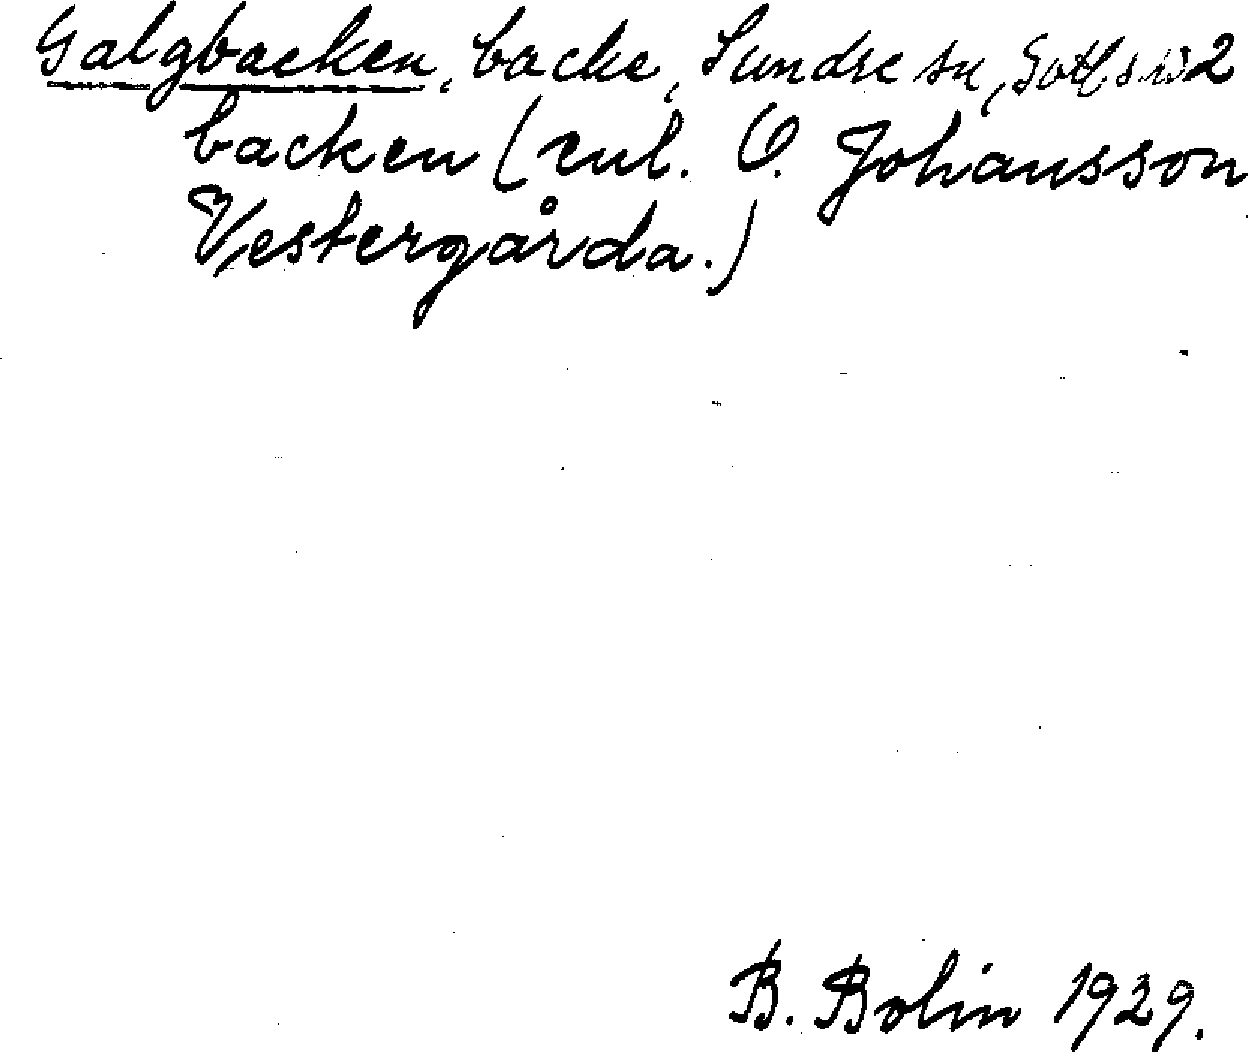 Galgbacken, backe, Sundre sn, Gotl. s. 2
backen (enl. O. Johansson
Vestergårda.)
B. Bolin 1929.